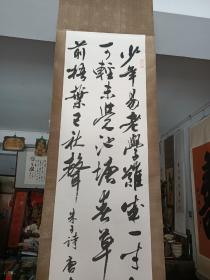 少年易老學難成一寸
可輕未覺池塘春草
前梧葉已秋聲
朱子詩